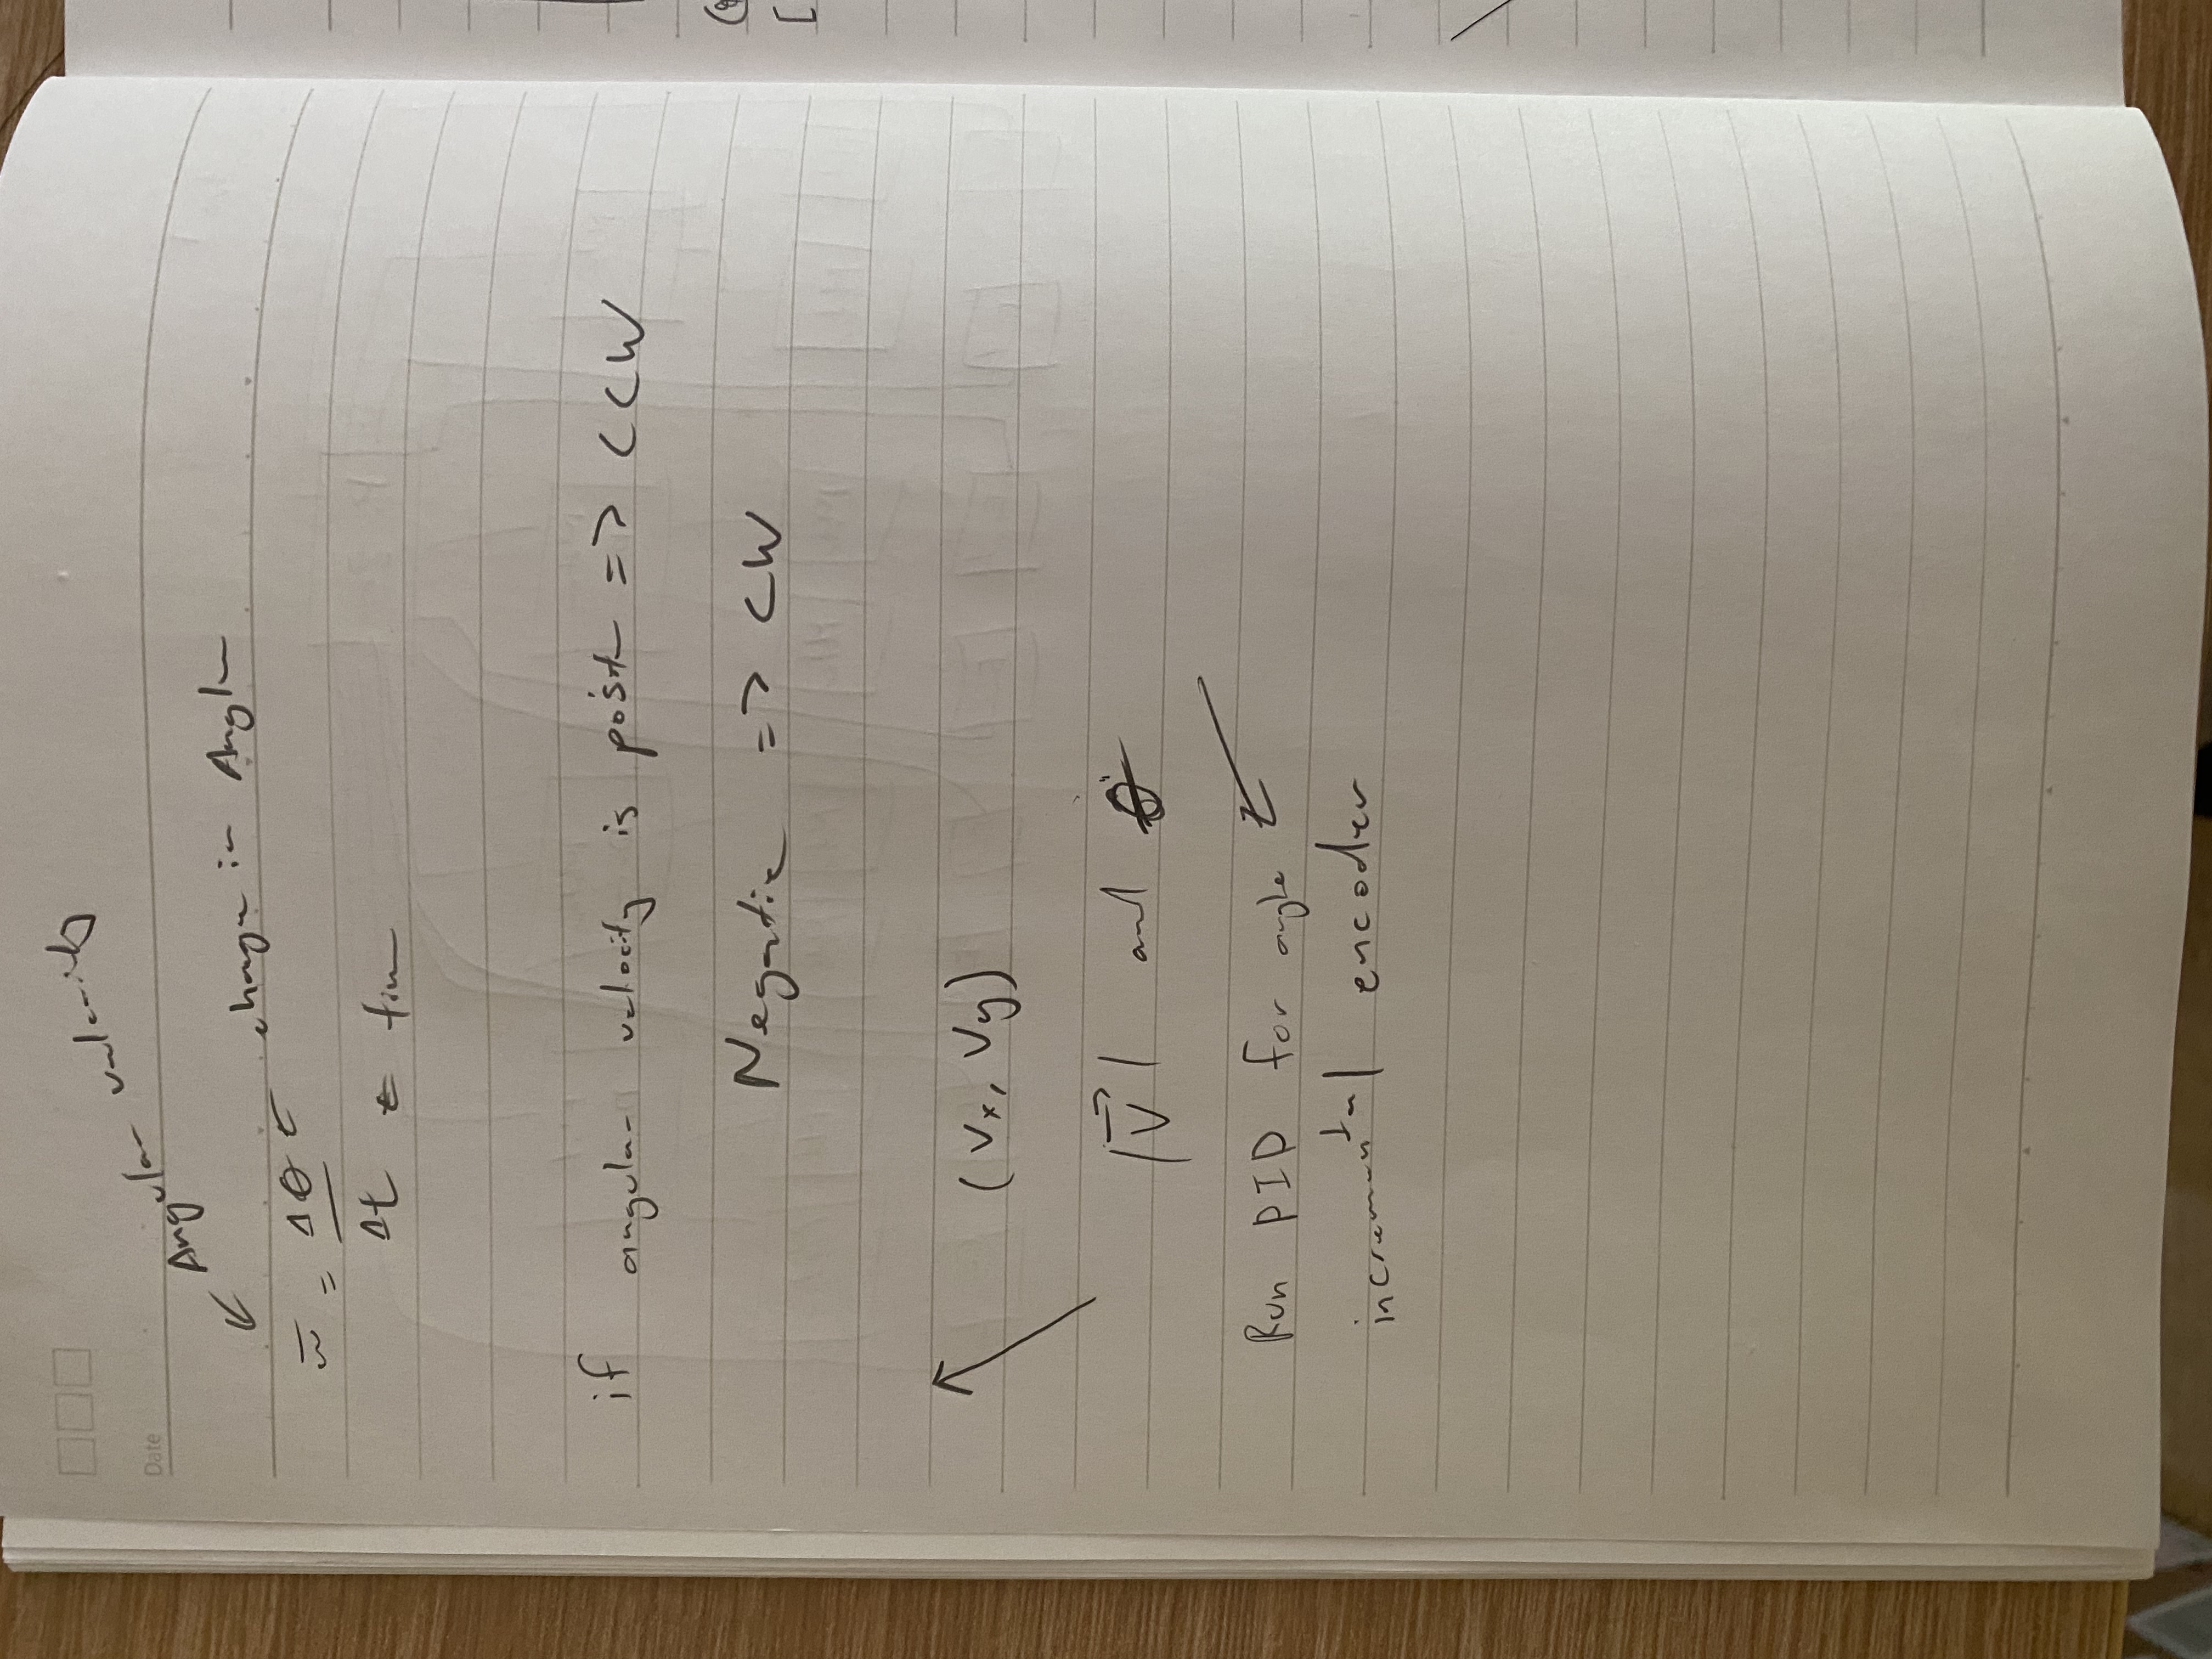 Date
Angular velocity
ω̄ = Δθ ← change in Angle
Δt ← time
if angular velocity is positive => CCW
Negative => CW
(Vx, Vy)
|V⃗| and θ
Run PID for angle ←
incremental encoder